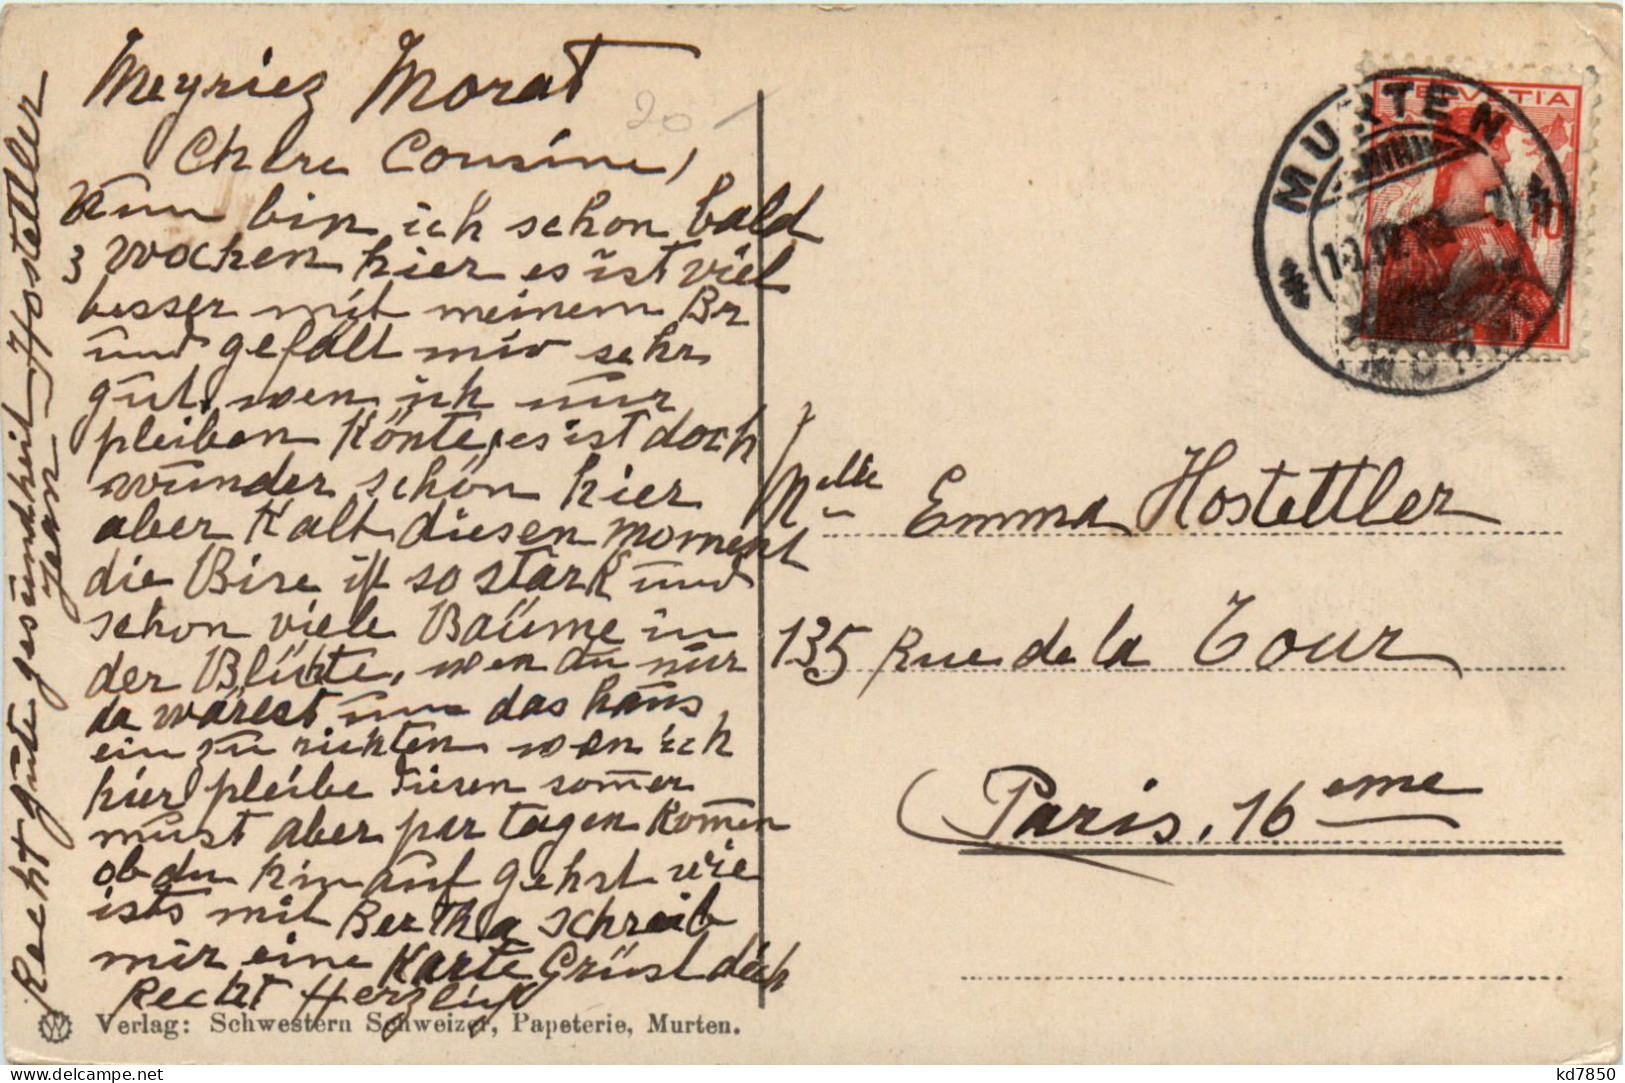 Meyriez Morat
20
Chere Cousine,
Nun bin ich schon bald
3 wochen hier es ist viel
besser mit meinem Br
und gefält mir sehr
gut, wen ich nur
pleiben Könte, es ist doch
wunder schön hier
aber Kalt diesen moment
die Bise ist so stark und
schon viele Baüme in
der Blühte, wen du nur
da wärest um das haus
ein zu richten wen ich
hier pleibe diesen somer
must aber par tagen Komen
ob du hin auf gehst wie
ists mit Bertha schreib
mir eine Karte Grüst dich
Recht Herzlich
Recht gute gesundheit
Jean Hostettler
Verlag: Schwestern Schweizer, Papeterie, Murten.
HELVETIA
10
MURTEN
MORAT
Melle Emma Hostettler
135 Rue de la Tour
Paris, 16eme
kd7850